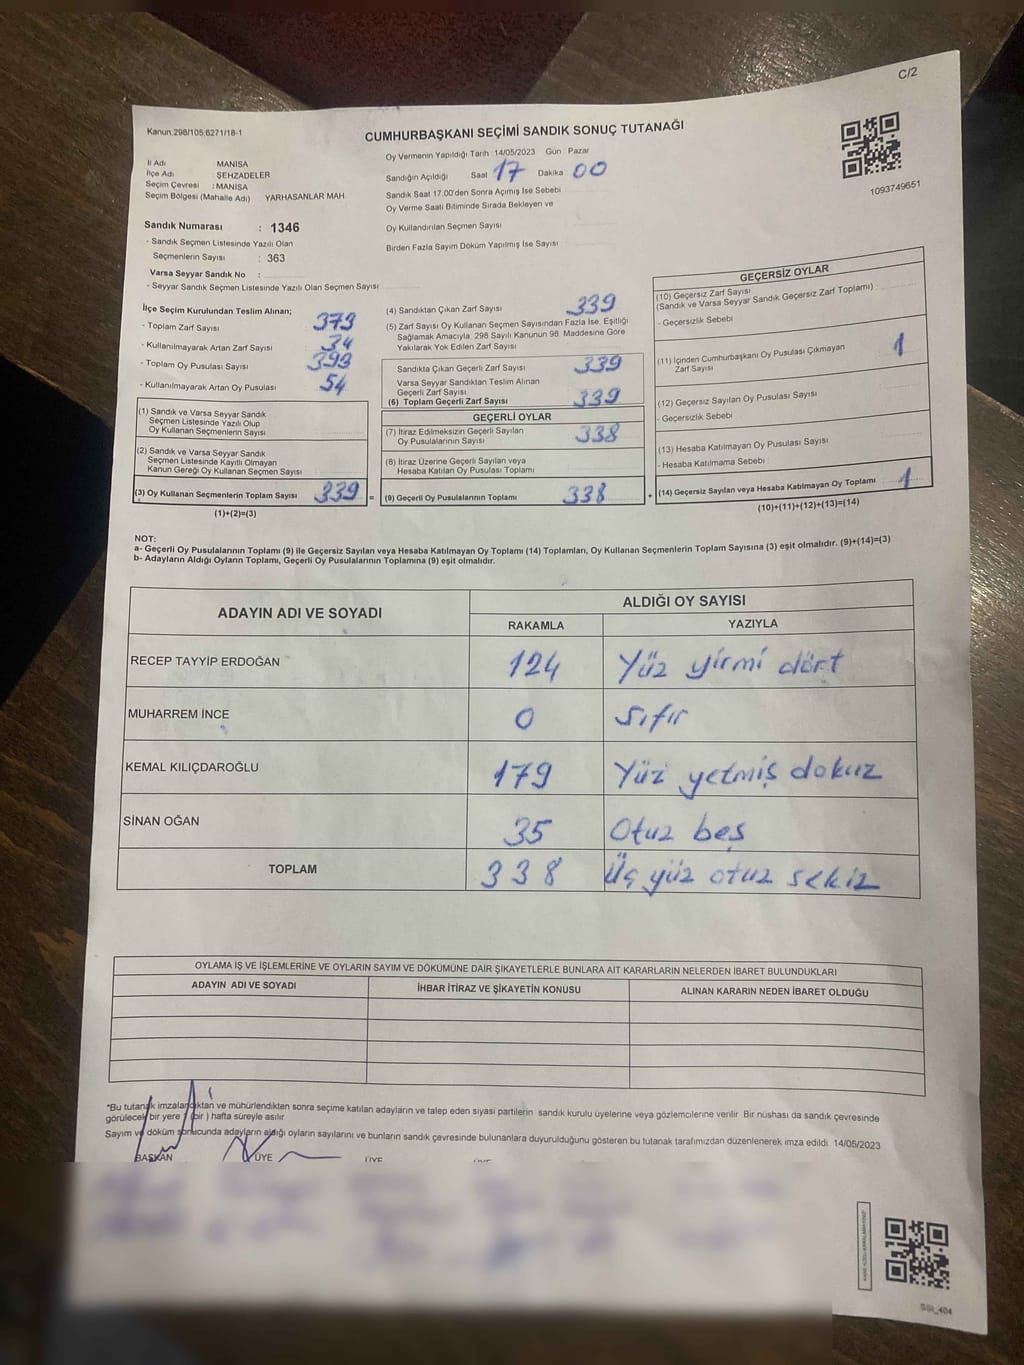 C/2
Kanun 298/105,6271/18-1
CUMHURBAŞKANI SEÇİMİ SANDIK SONUÇ TUTANAĞI
1093749651
İl Adı MANİSA
İlçe Adı : ŞEHZADELER
Seçim Çevresi : MANİSA
Seçim Bölgesi (Mahalle Adı) YARHASANLAR MAH
Oy Vermenin Yapıldığı Tarih : 14/05/2023 Gün : Pazar
Sandığın Açıldığı Saat 17 Dakika 00
Sandık Saat 17:00'den Sonra Açımış İse Sebebi
Oy Verme Saati Bitiminde Sırada Bekleyen ve
Oy Kullandırılan Seçmen Sayısı
Birden Fazla Sayım Döküm Yapılmış İse Sayısı
Sandık Numarası : 1346
- Sandık Seçmen Listesinde Yazılı Olan
Seçmenlerin Sayısı : 363
Varsa Seyyar Sandık No :
- Seyyar Sandık Seçmen Listesinde Yazılı Olan Seçmen Sayısı
İlçe Seçim Kurulundan Teslim Alınan;
- Toplam Zarf Sayısı 373
- Kullanılmayarak Artan Zarf Sayısı 34
- Toplam Oy Pusulası Sayısı 393
- Kullanılmayarak Artan Oy Pusulası 54
(1) Sandık ve Varsa Seyyar Sandık
Seçmen Listesinde Yazılı Olup
Oy Kullanan Seçmenlerin Sayısı
(2) Sandık ve Varsa Seyyar Sandık
Seçmen Listesinde Kayıtlı Olmayan
Kanun Gereği Oy Kullanan Seçmen Sayısı
(3) Oy Kullanan Seçmenlerin Toplam Sayısı 339 =
(1)+(2)=(3)
(4) Sandıktan Çıkan Zarf Sayısı 339
(5) Zarf Sayısı Oy Kullanan Seçmen Sayısından Fazla İse, Eşitliği
Sağlamak Amacıyla, 298 Sayılı Kanunun 98. Maddesine Göre
Yakılarak Yok Edilen Zarf Sayısı
Sandıkta Çıkan Geçerli Zarf Sayısı 339
Varsa Seyyar Sandıktan Teslim Alınan
Geçerli Zarf Sayısı
(6) Toplam Geçerli Zarf Sayısı 339
GEÇERLİ OYLAR
(7) İtiraz Edilmeksizin Geçerli Sayılan
Oy Pusulalarının Sayısı 338
(8) İtiraz Üzerine Geçerli Sayılan veya
Hesaba Katılan Oy Pusulası Toplamı
(9) Geçerli Oy Pusulalarının Toplamı 338 +
GEÇERSİZ OYLAR
(10) Geçersiz Zarf Sayısı
(Sandık ve Varsa Seyyar Sandık Geçersiz Zarf Toplamı) :
- Geçersizlik Sebebi
(11) İçinden Cumhurbaşkanı Oy Pusulası Çıkmayan
Zarf Sayısı 1
(12) Geçersiz Sayılan Oy Pusulası Sayısı
- Geçersizlik Sebebi
(13) Hesaba Katılmayan Oy Pusulası Sayısı
- Hesaba Katılmama Sebebi
(14) Geçersiz Sayılan veya Hesaba Katılmayan Oy Toplamı 1
(10)+(11)+(12)+(13)=(14)
NOT:
a- Geçerli Oy Pusulalarının Toplamı (9) ile Geçersiz Sayılan veya Hesaba Katılmayan Oy Toplamı (14) Toplamları, Oy Kullanan Seçmenlerin Toplam Sayısına (3) eşit olmalıdır. (9)+(14)=(3)
b- Adayların Aldığı Oyların Toplamı, Geçerli Oy Pusulalarının Toplamına (9) eşit olmalıdır.
ADAYIN ADI VE SOYADI ALDIĞI OY SAYISI
RAKAMLA YAZIYLA
RECEP TAYYİP ERDOĞAN 124 Yüz yirmi dört
MUHARREM İNCE 0 Sıfır
KEMAL KILIÇDAROĞLU 179 Yüz yetmiş dokuz
SİNAN OĞAN 35 Otuz beş
TOPLAM 338 Üç yüz otuz sekiz
OYLAMA İŞ VE İŞLEMLERİNE VE OYLARIN SAYIM VE DÖKÜMÜNE DAİR ŞİKAYETLERLE BUNLARA AİT KARARLARIN NELERDEN İBARET BULUNDUKLARI
ADAYIN ADI VE SOYADI İHBAR İTİRAZ VE ŞİKAYETİN KONUSU ALINAN KARARIN NEDEN İBARET OLDUĞU
*Bu tutanak imzalandıktan ve mühürlendikten sonra seçime katılan adayların ve talep eden siyasi partilerin sandık kurulu üyelerine veya gözlemcilerine verilir. Bir nüshası da sandık çevresinde
görülecek bir yere 1 (bir ) hafta süreyle asılır.
Sayım ve döküm sonucunda adayların aldığı oyların sayılarını ve bunların sandık çevresinde bulunanlara duyurulduğunu gösteren bu tutanak tarafımızdan düzenlenerek imza edildi. 14/05/2023
BAŞKAN ÜYE ÜYE ÜYE
SSI_404